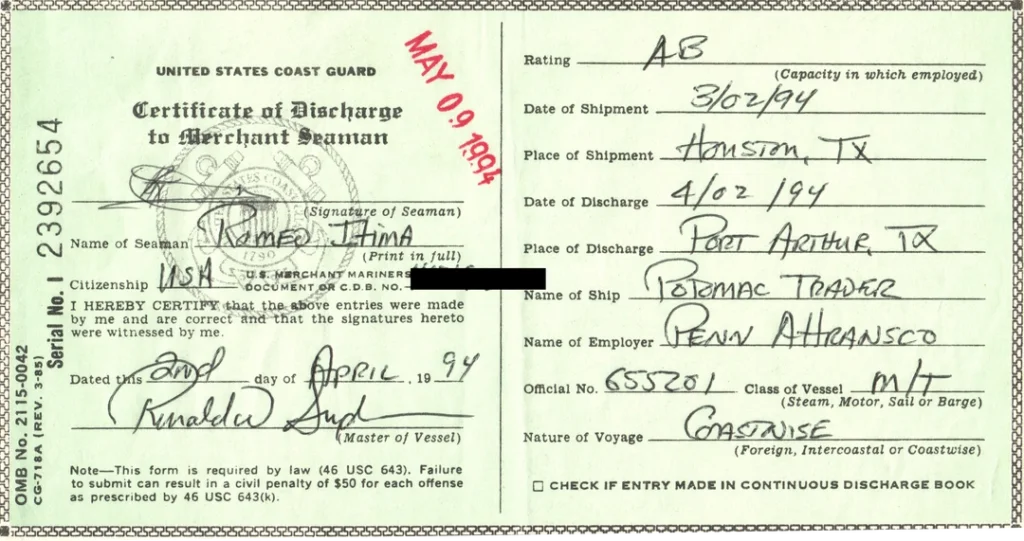 UNITED STATES COAST GUARD
Certificate of Discharge
to Merchant Seaman
MAY 09 1994
(Signature of Seaman)
Name of Seaman ROMEO ITIMA
(Print in full)
Citizenship USA U.S. MERCHANT MARINERS
DOCUMENT OR C.D.B. NO.
I HEREBY CERTIFY that the above entries were made
by me and are correct and that the signatures hereto
were witnessed by me.
Dated this 2nd day of APRIL, 19 94
(Master of Vessel)
Note—This form is required by law (46 USC 643). Failure
to submit can result in a civil penalty of $50 for each offense
as prescribed by 46 USC 643(k).
Serial No. 1 2392654
OMB No. 2115-0042
CG-718A (REV. 3-85)
1790
Rating AB
(Capacity in which employed)
Date of Shipment 3/02/94
Place of Shipment HOUSTON, TX
Date of Discharge 4/02/94
Place of Discharge PORT ARTHUR, TX
Name of Ship POTOMAC TRADER
Name of Employer PENN ATTRANSCO
Official No. 655201 Class of Vessel M/T
(Steam, Motor, Sail or Barge)
Nature of Voyage COASTWISE
(Foreign, Intercoastal or Coastwise)
☐ CHECK IF ENTRY MADE IN CONTINUOUS DISCHARGE BOOK